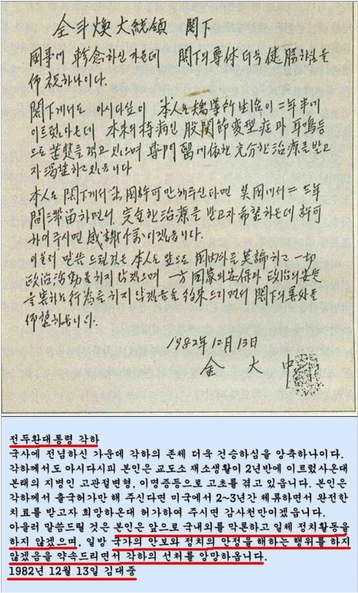 全斗煥大統領 閣下
國事에 軫念하신 가운데 閣下의 尊体 더욱 健勝하심을
仰祝하나이다.
閣下께서도 아시다싶이 本人은 矯導所生活이 二年半에
이르렀아온데 本來의 持病인 股關節變型症과 耳鳴等
으로 苦楚를 겪고있으며 專門醫에依한 充分한 治療를 받고
자 渴望하고있읍니다
本人은 閣下께서 出國許可만해주신다면 美國에서 二~三年
間滯留하면서, 完全한 治療를 받고자 希望하온데 許可
하여주시면 感謝千萬이겠읍니다.
아울러 말씀드릴것은 本人은 앞으로 國內外를 莫論하고 一切
政治活動을 하지않겠으며 一方 國家의 安保와 政治의 安定
을 害하는 行爲를 하지않겠음을 約束드리면서 閣下의 善處를
仰望하옵니다.
1982年 12月 13日
金 大 中
전두환대통령 각하
국사에 전념하신 가운데 각하의 존체 더욱 건승하심을 앙축하나이다.
각하께서도 아시다시피 본인은 교도소 재소생활이 2년반에 이르렀사온데
본래의 지병인 고관절변형, 이명증등으로 고초를 겪고 있읍니다. 본인은
각하께서 출국허가만 해 주신다면 미국에서 2~3년간 체류하면서 완전한
치료를 받고자 희망하온데 허가하여 주시면 감사천만이겠읍니다.
아울러 말씀드릴 것은 본인은 앞으로 국내외를 막론하고 일체 정치활동을
하지 않겠으며, 일방 국가의 안보와 정치의 안정을 해하는 행위를 하지
않겠음을 약속드리면서 각하의 선처를 앙망하옵니다.
1982년 12월 13일 김대중